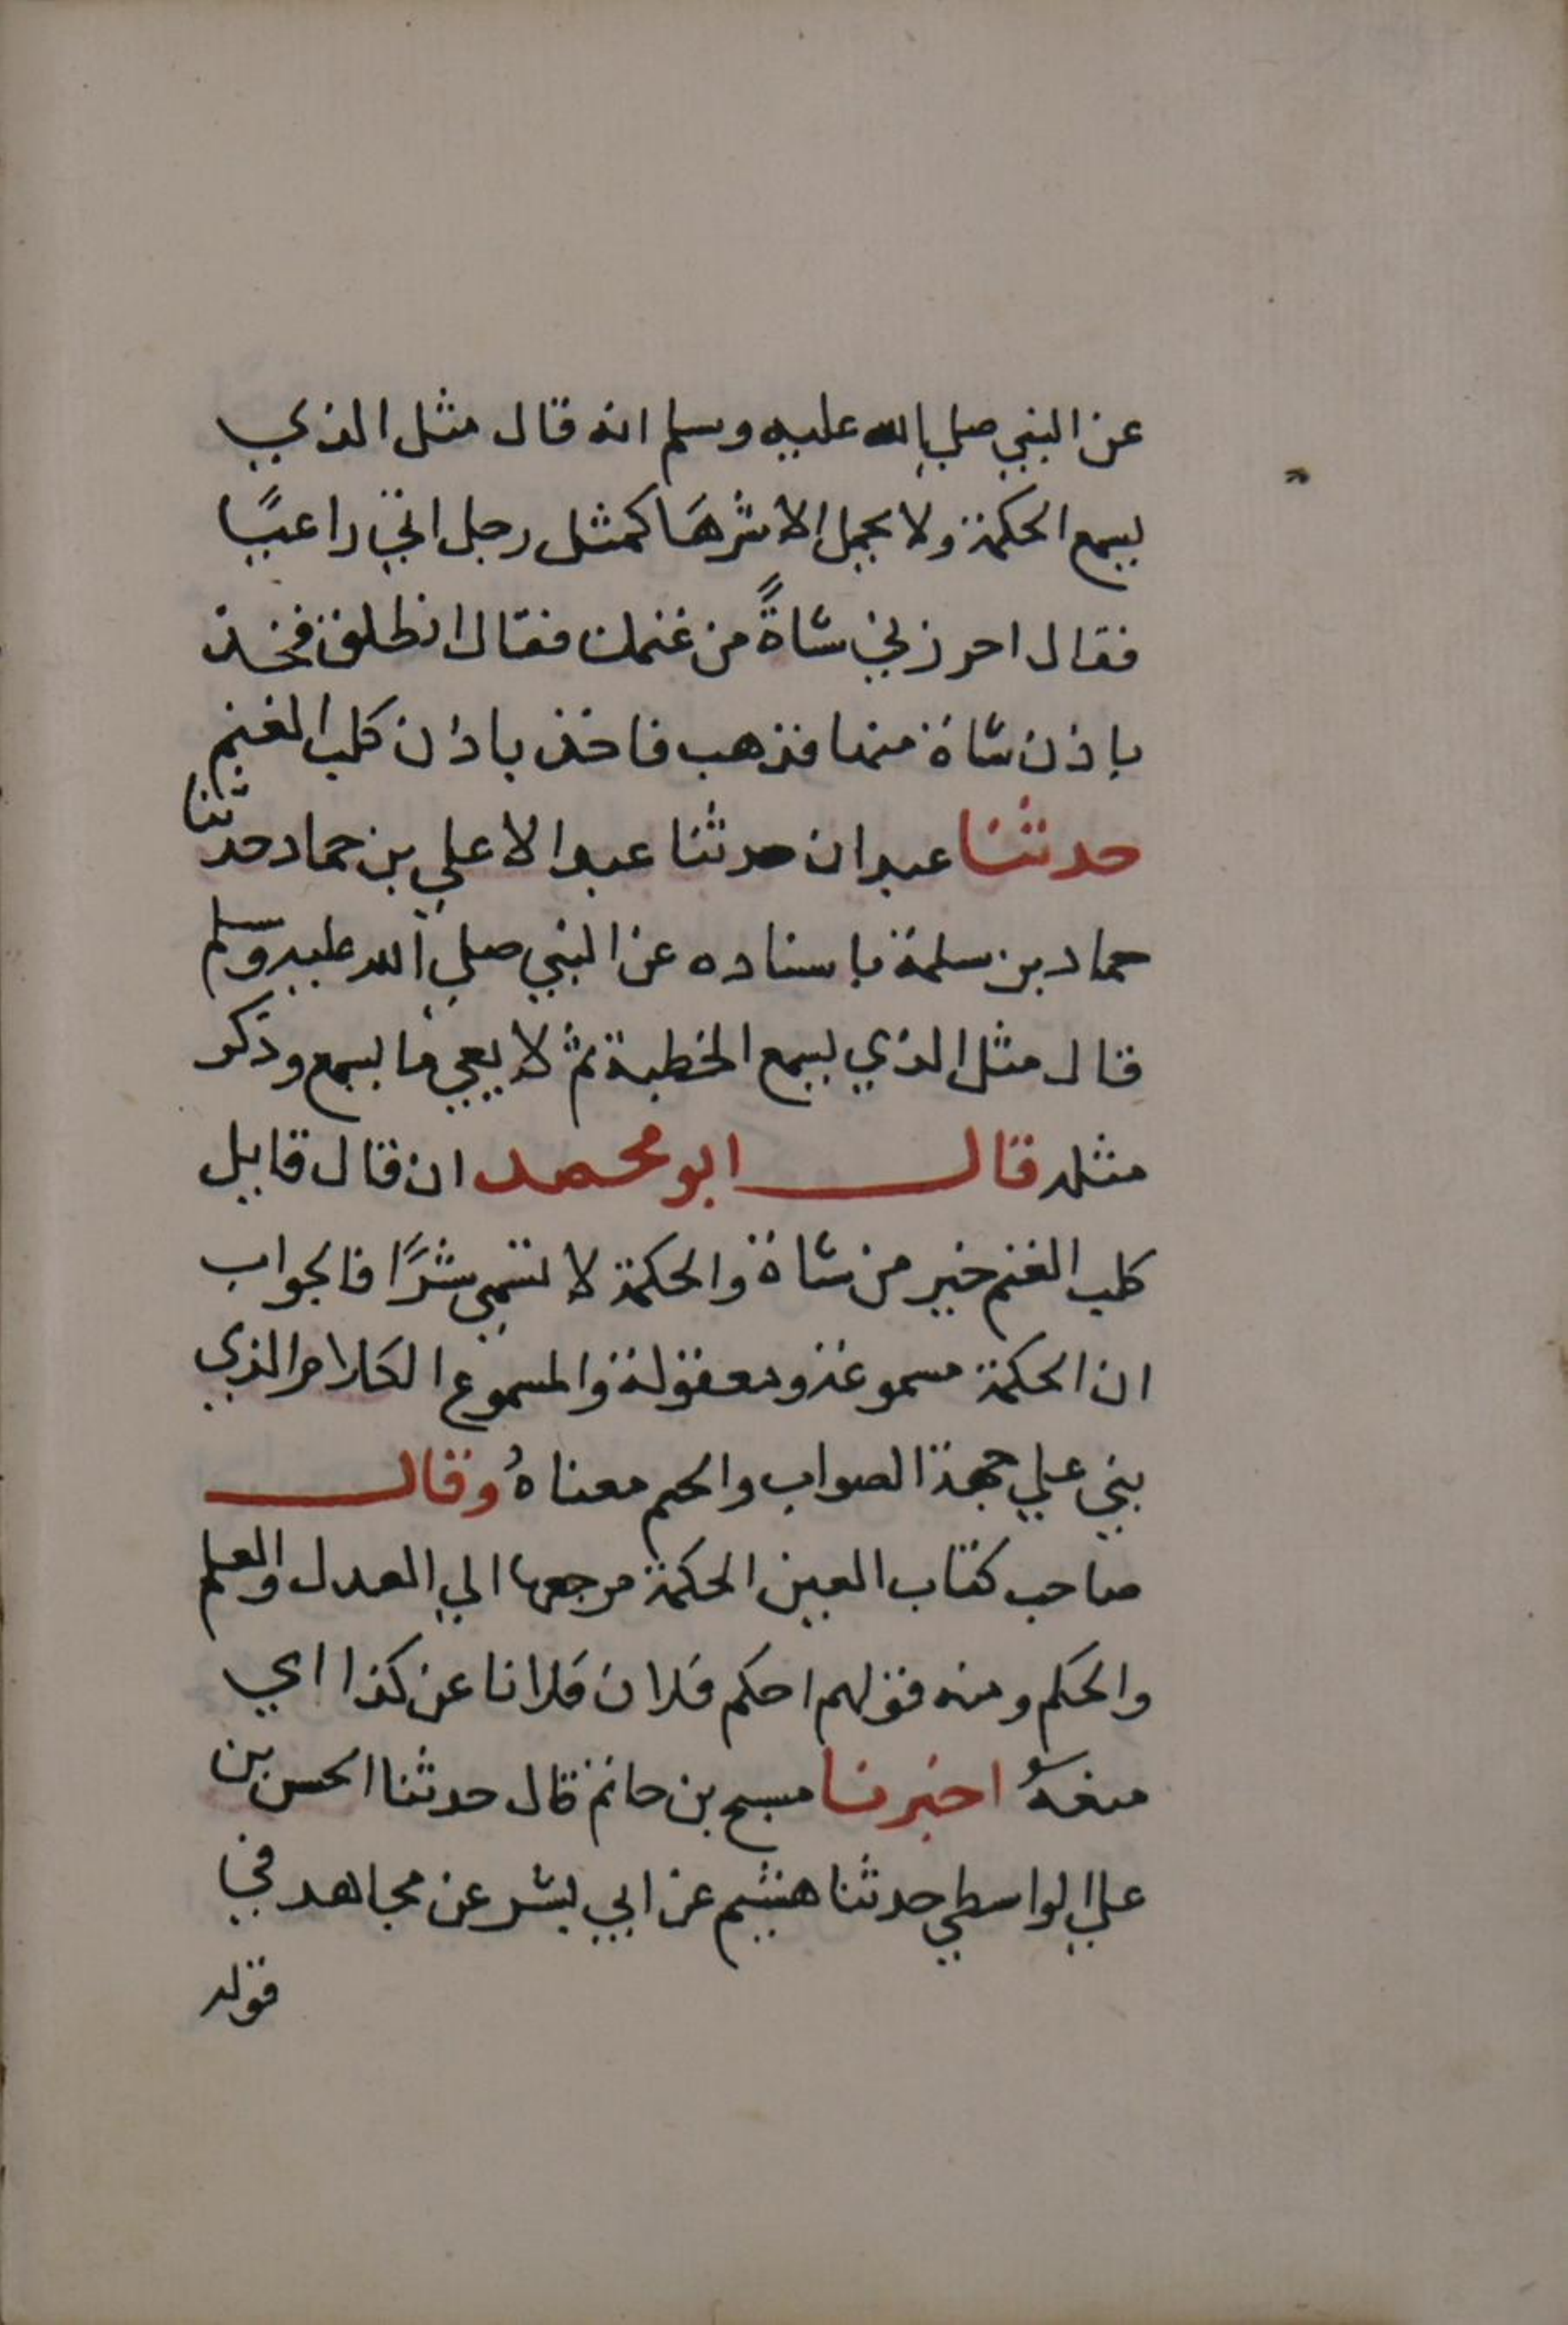 عن النبي صلي الله عليه وسلم انه قال مثل الذي
يسمع الحكمة ولا يحمل الا شرها كمثل رجل اتي راعيًا
فقال اجزرني شاةً من غنمك فقال انطلق فخذ
باذن شاة منها فذهب فاخذ باذن كلب الغنم
حدثنا عبدان حدثنا عبد الاعلي بن حماد حدثنا
حماد بن سلمة باسناده عن النبي صلي الله عليه وسلم
قال مثل الذي يسمع الخطبة ثم لا يعي ما يسمع وذكر
مثله قال ابو محمد ان قال قايل
كلب الغنم خير من شاة والحكمة لا تسمي شرًا فالجواب
ان الحكمة مسموعة ومعقولة والمسموع الكلام الذي
بني علي جهة الصواب والحكم معناهُ وقال
صاحب كتاب العين الحكمة مرجعها الي العدل والعلم
والحكم ومنه قولهم احكم فلان فلانا عن كذا اي
منعهُ اخبرنا مسبح بن حاتم قال حدثنا الحسن بن
علي الواسطي حدثنا هشيم عن ابي بشر عن مجاهد في
قوله